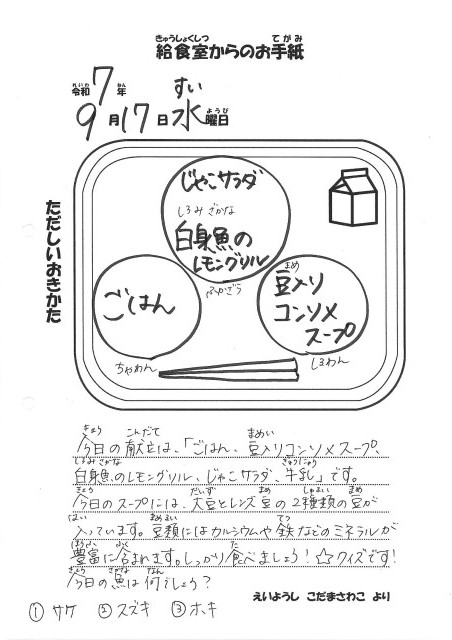 きゅうしょくしつ てがみ
給食室からのお手紙
れいわ ねん すい
令和7年
9月17日 水曜日
ようび
ただしいおきかた
じゃこサラダ
しろみ ざかな
白身魚の
レモングリル
ごはん
まめ
豆入り
コンソメ
スープ
ちゃわん
しるわん
きょう こんだて まめい
今日の献立は、「ごはん、豆入りコンソメスープ、
しろみ ざかな ぎゅうにゅう
白身魚のレモングリル、じゃこサラダ、牛乳」です。
きょう だいず まめ しゅるい まめ
今日のスープには、大豆とレンズ豆の2種類の豆が
はい まめるい てつ
入っています。豆類にはカルシウムや鉄などのミネラルが
ほうふ ふく た
豊富に含まれます。しっかり食べましょう!☆クイズです!
きょう さかな なん
今日の魚は何でしょう?
えいようし こだまさわこ より
① サケ ② スズキ ③ ホキ